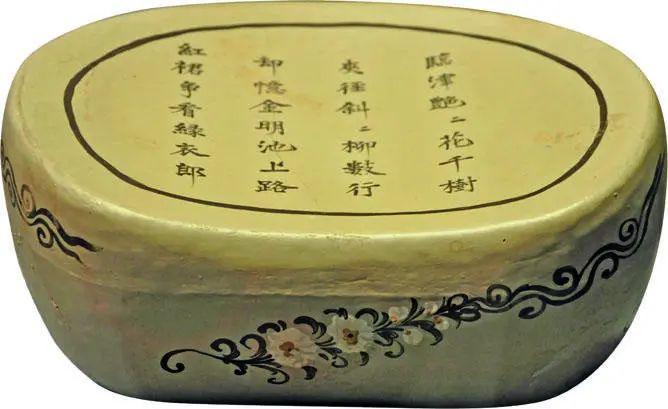 臨津艷〻花千樹
夾徑斜〻柳數行
却憶金明池上路
紅裙争看緑衣郎